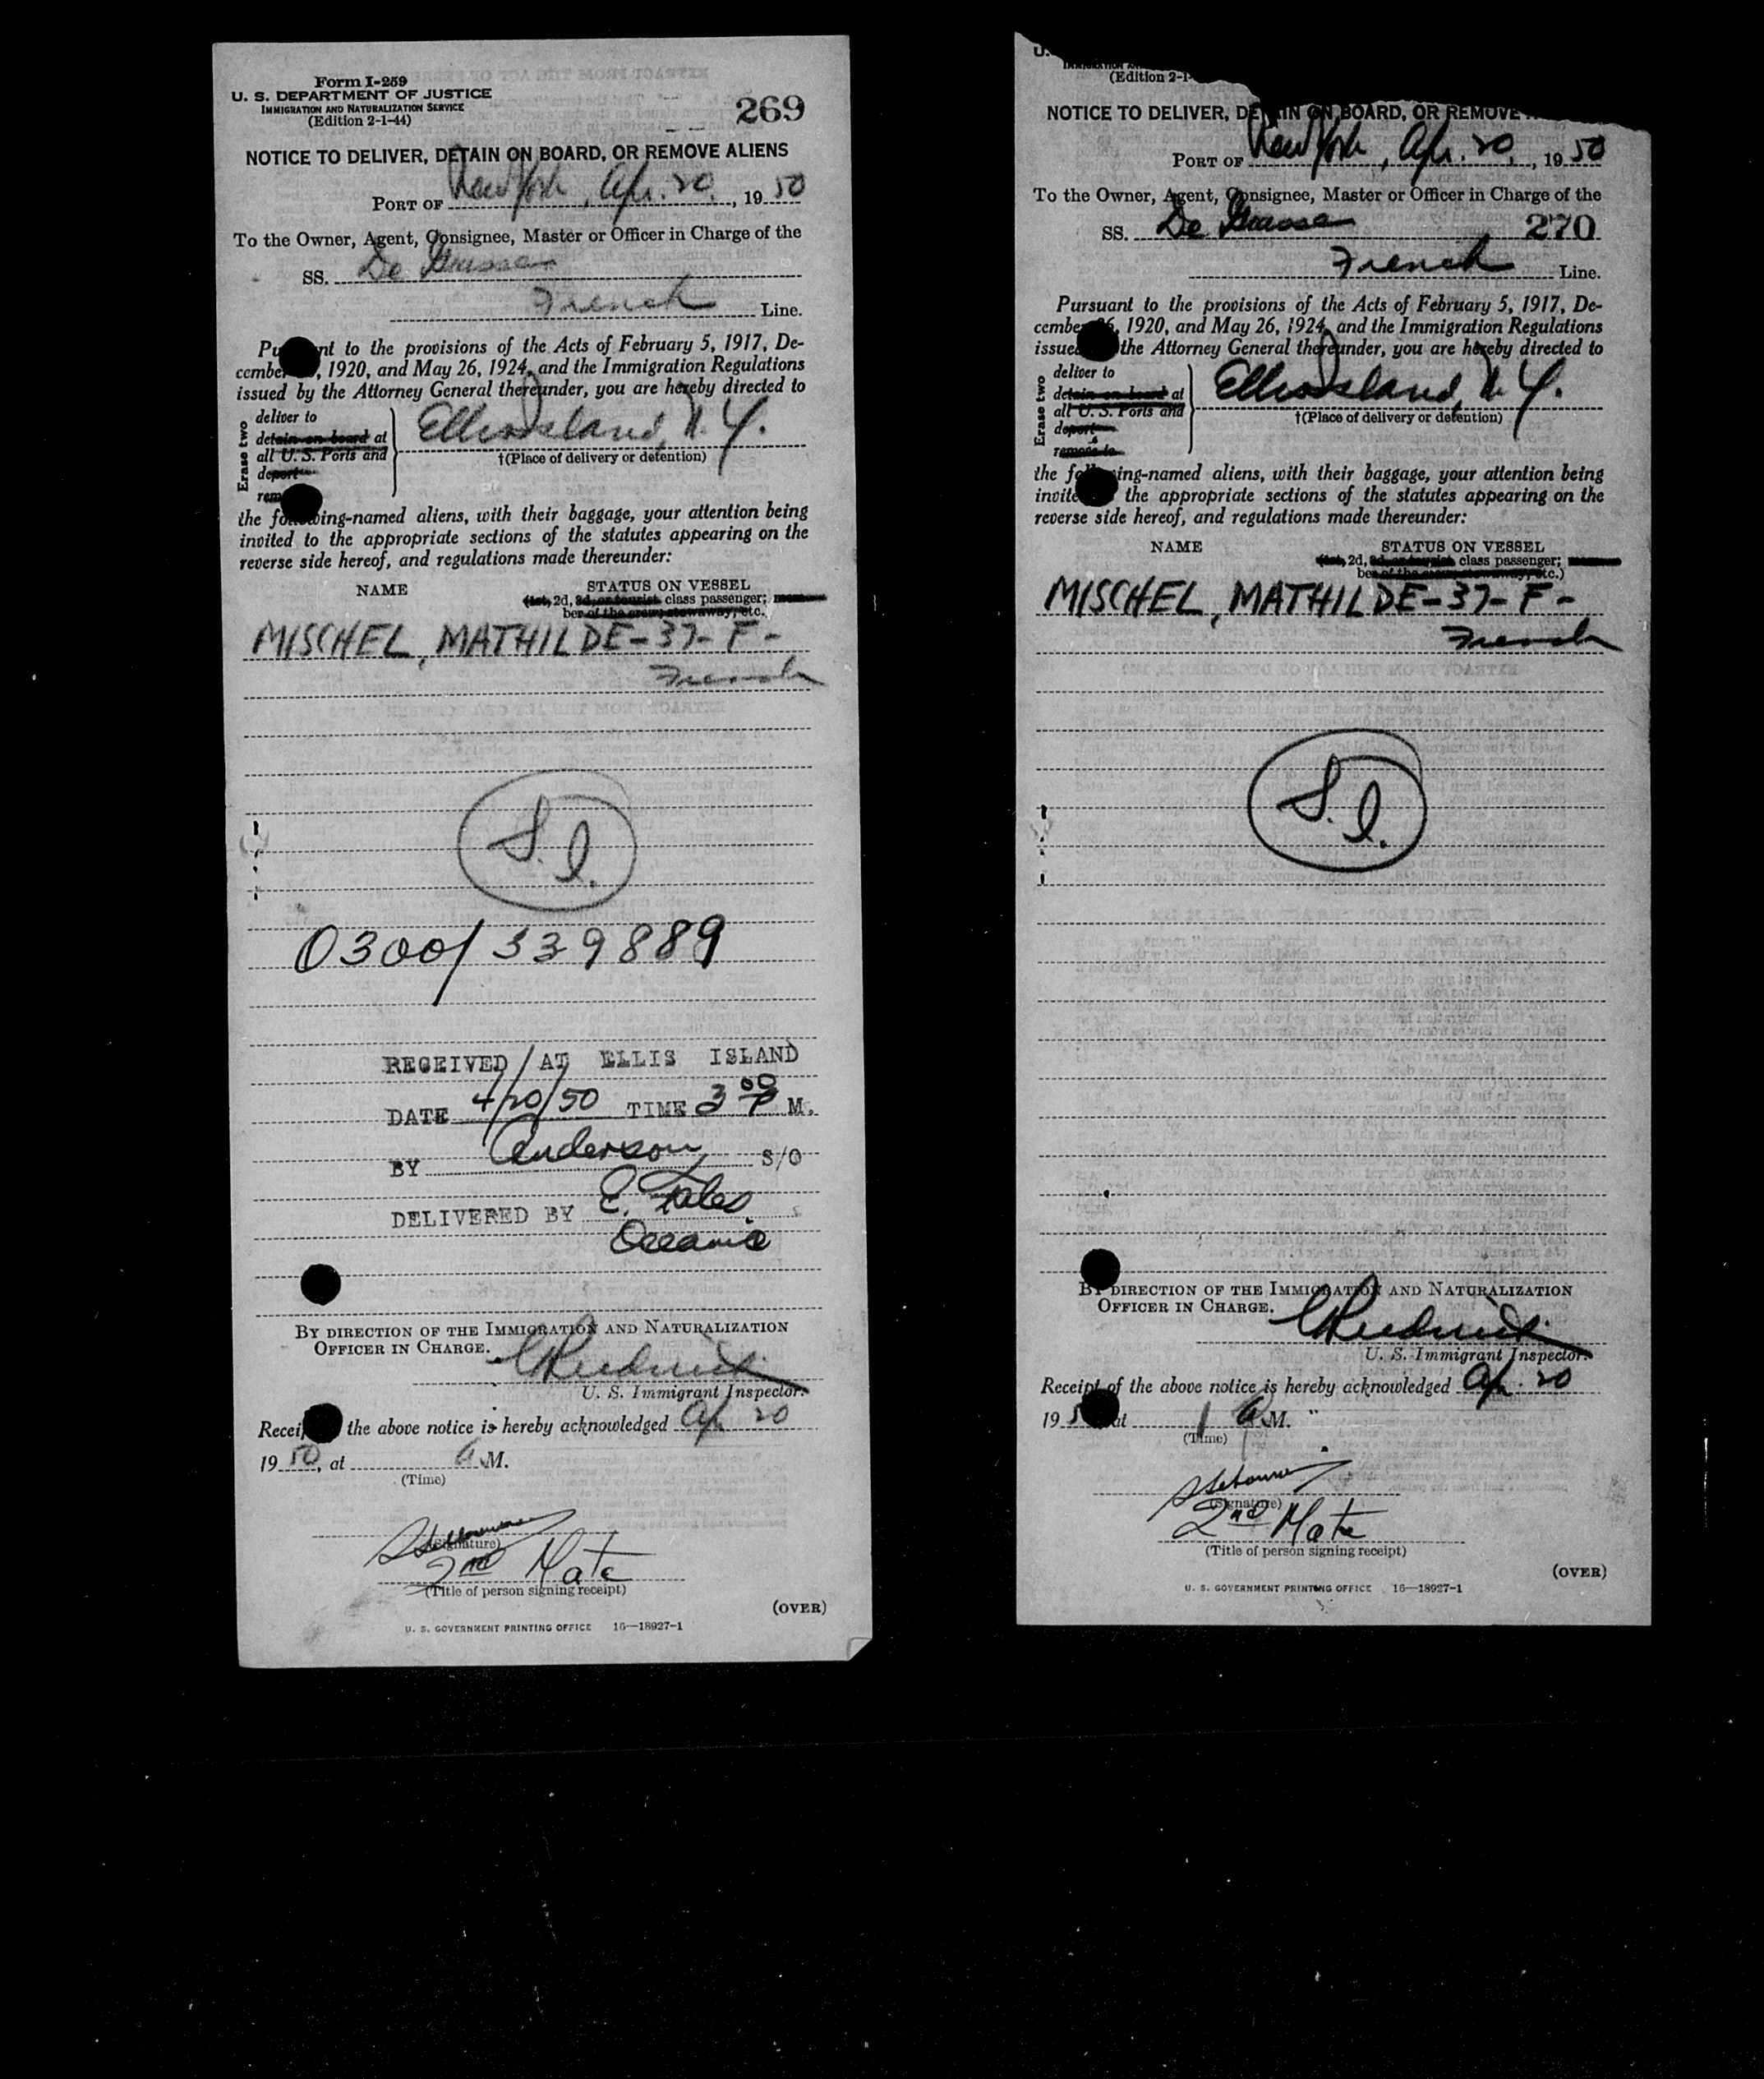 Form I-259
U. S. DEPARTMENT OF JUSTICE
IMMIGRATION AND NATURALIZATION SERVICE
(Edition 2-1-44)
269
NOTICE TO DELIVER, DETAIN ON BOARD, OR REMOVE ALIENS
PORT OF New York, Apr. 20, 1950
To the Owner, Agent, Consignee, Master or Officer in Charge of the
SS. De Grasse
French Line.
Pu nt to the provisions of the Acts of February 5, 1917, De-
cembe , 1920, and May 26, 1924, and the Immigration Regulations
issued by the Attorney General thereunder, you are hereby directed to
Erase two
deliver to
detain on board at
all U. S. Ports and
deport
rem
Ellis Island, N. Y.
†(Place of delivery or detention)
the following-named aliens, with their baggage, your attention being
invited to the appropriate sections of the statutes appearing on the
reverse side hereof, and regulations made thereunder:
NAME STATUS ON VESSEL
(1st, 2d, 3d, or tourist class passenger; mem-
ber of the crew, stowaway, etc.
MISCHEL, MATHILDE-37-F-
French
S.I.
0300/339889
RECEIVED AT ELLIS ISLAND
DATE 4/20/50 TIME 3 00 P M.
BY Anderson S/O
DELIVERED BY E. Fales
Oceanic
BY DIRECTION OF THE IMMIGRATION AND NATURALIZATION
OFFICER IN CHARGE.
U. S. Immigrant Inspector.
Recei the above notice is hereby acknowledged Apr 20
1950, at A M.
(Time)
(Signature)
2nd Mate
(Title of person signing receipt)
(OVER)
U. S. GOVERNMENT PRINTING OFFICE 16—18927-1
U.
(Edition 2-1
NOTICE TO DELIVER, DETAIN ON BOARD, OR REMOVE
PORT OF New York, Apr. 20, 1950
To the Owner, Agent, Consignee, Master or Officer in Charge of the
SS. De Grasse 270
French Line.
Pursuant to the provisions of the Acts of February 5, 1917, De-
cember 26, 1920, and May 26, 1924, and the Immigration Regulations
issued the Attorney General thereunder, you are hereby directed to
Erase two
deliver to
detain on board at
all U. S. Ports and
deport
remove to
Ellis Island, N. Y.
†(Place of delivery or detention)
the following-named aliens, with their baggage, your attention being
invite the appropriate sections of the statutes appearing on the
reverse side hereof, and regulations made thereunder:
NAME STATUS ON VESSEL
(1st, 2d, 3d, or tourist class passenger; mem-
ber of the crew, stowaway, etc.)
MISCHEL, MATHILDE-37-F-
French
S.I.
BY DIRECTION OF THE IMMIGRATION AND NATURALIZATION
OFFICER IN CHARGE.
U. S. Immigrant Inspector.
Receipt of the above notice is hereby acknowledged Apr. 20
195 at 1 P M.
(Time)
(Signature)
2nd Mate
(Title of person signing receipt)
(OVER)
U. S. GOVERNMENT PRINTING OFFICE 16—18927-1